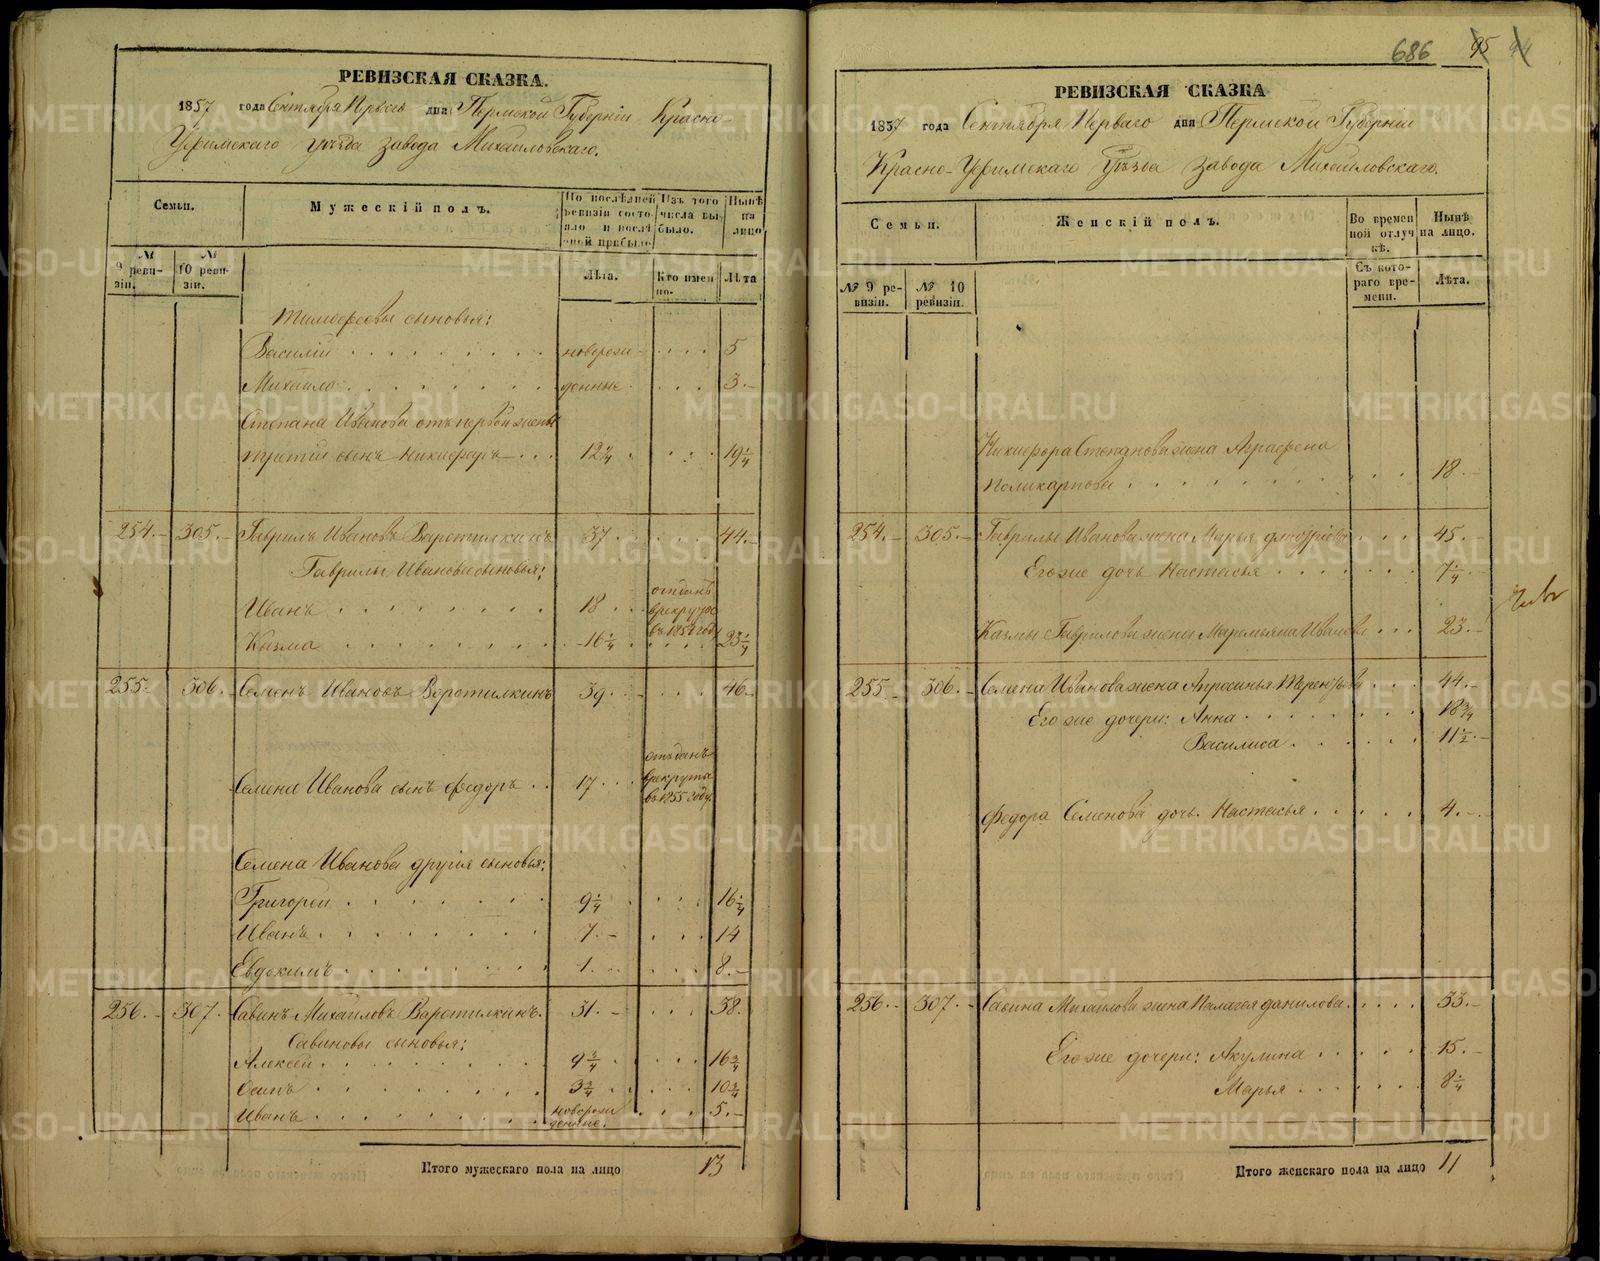 РЕВИЗСКАЯ СКАЗКА.
1857 года Сентября Перваго дня Пермской Губерніи Красно-
Уфимскаго уѣзда завода Михайловскаго.
Семьи.
Мужескій полъ.
По послѣдней ревизіи состояло и послѣ оной прибыло
Изъ того числа выбыло.
Нынѣ на лицо
№ 9 ревизіи.
№ 10 ревизіи.
Лѣта.
Кто именно.
Лѣта
Тимофеевы сыновья:
Василій новорож- 5
Михайло денные 3.
Степана Иванова отъ первой жены
третій сынъ Никифоръ 12 19 1/4
254. 305. Гаврилъ Ивановъ Воротилкинъ 37 44.
Гаврилы Иванова сыновья:
Иванъ 18 отданъ в рекруты въ 1854 году
Казма 16 1/4 23 1/4
255. 306. Семенъ Ивановъ Воротилкинъ 39 46
Семена Иванова сынъ Федоръ 17 отданъ в рекруты въ 1855 году
Семена Иванова другія сыновья:
Григорей 9 1/4 16 1/4
Иванъ 7. 14
Евдокимъ 1. 8.
256. 307. Савинъ Михайловъ Воротилкинъ. 31. 38.
Савиновы сыновья:
Алексей 9 3/4 16 3/4
Осипъ 3 3/4 10 3/4
Иванъ новорожденные. 5.
Итого мужескаго пола на лицо 13
686 95 94
РЕВИЗСКАЯ СКАЗКА
1857 года Сентября Перваго дня Пермской Губерніи
Красно-Уфимскаго Уѣзда завода Михайловскаго.
Семьи.
Женскій полъ.
Во временной отлучкѣ.
Нынѣ на лицо.
№ 9 ревизіи.
№ 10 ревизіи.
Съ котораго времени.
Лѣта.
Никифора Степанова жена Аграфена
Поликарпова 18.
254. 305. Гаврилы Иванова жена Марья 45.
Его же дочь Настасья 7 1/4
Казмы Гаврилова жена Маремьяна Иванова 23.
255 306. Семена Иванова жена Апросинья Терентьева 44.
Его же дочери: Анна 18 3/4
Василиса 11 1/2.
Федора Семенова дочь Настасья 4.
256. 307. Савина Михайлова жена Палагея Данилова. 33.
Его же дочери: Акулина 15.
Марья 8 1/4
Итого женскаго пола на лицо 11
METRIKI.GASO-URAL.RU